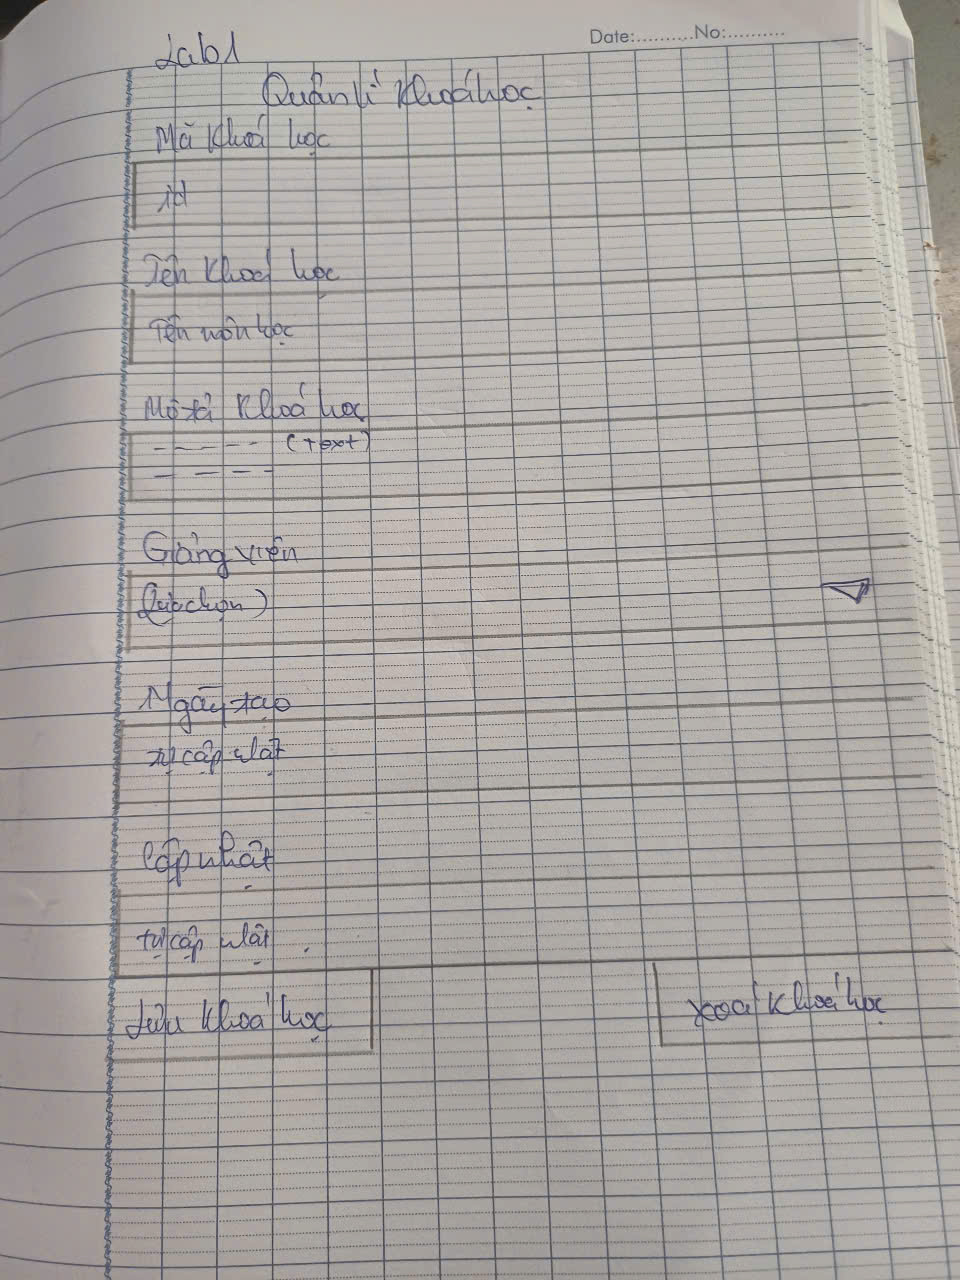 Date:..........No:..........
Lab1
Quản lí khoá học
Mã khoá học
id
Tên khoá học
Tên môn học
Mô tả khoá học
- - - - - (text)
- - - - -
Giảng viên
chọn)
Ngày tạo
tự cập nhật
Cập nhật
tự cập nhật
Lưu khoá học
Xoá khoá học